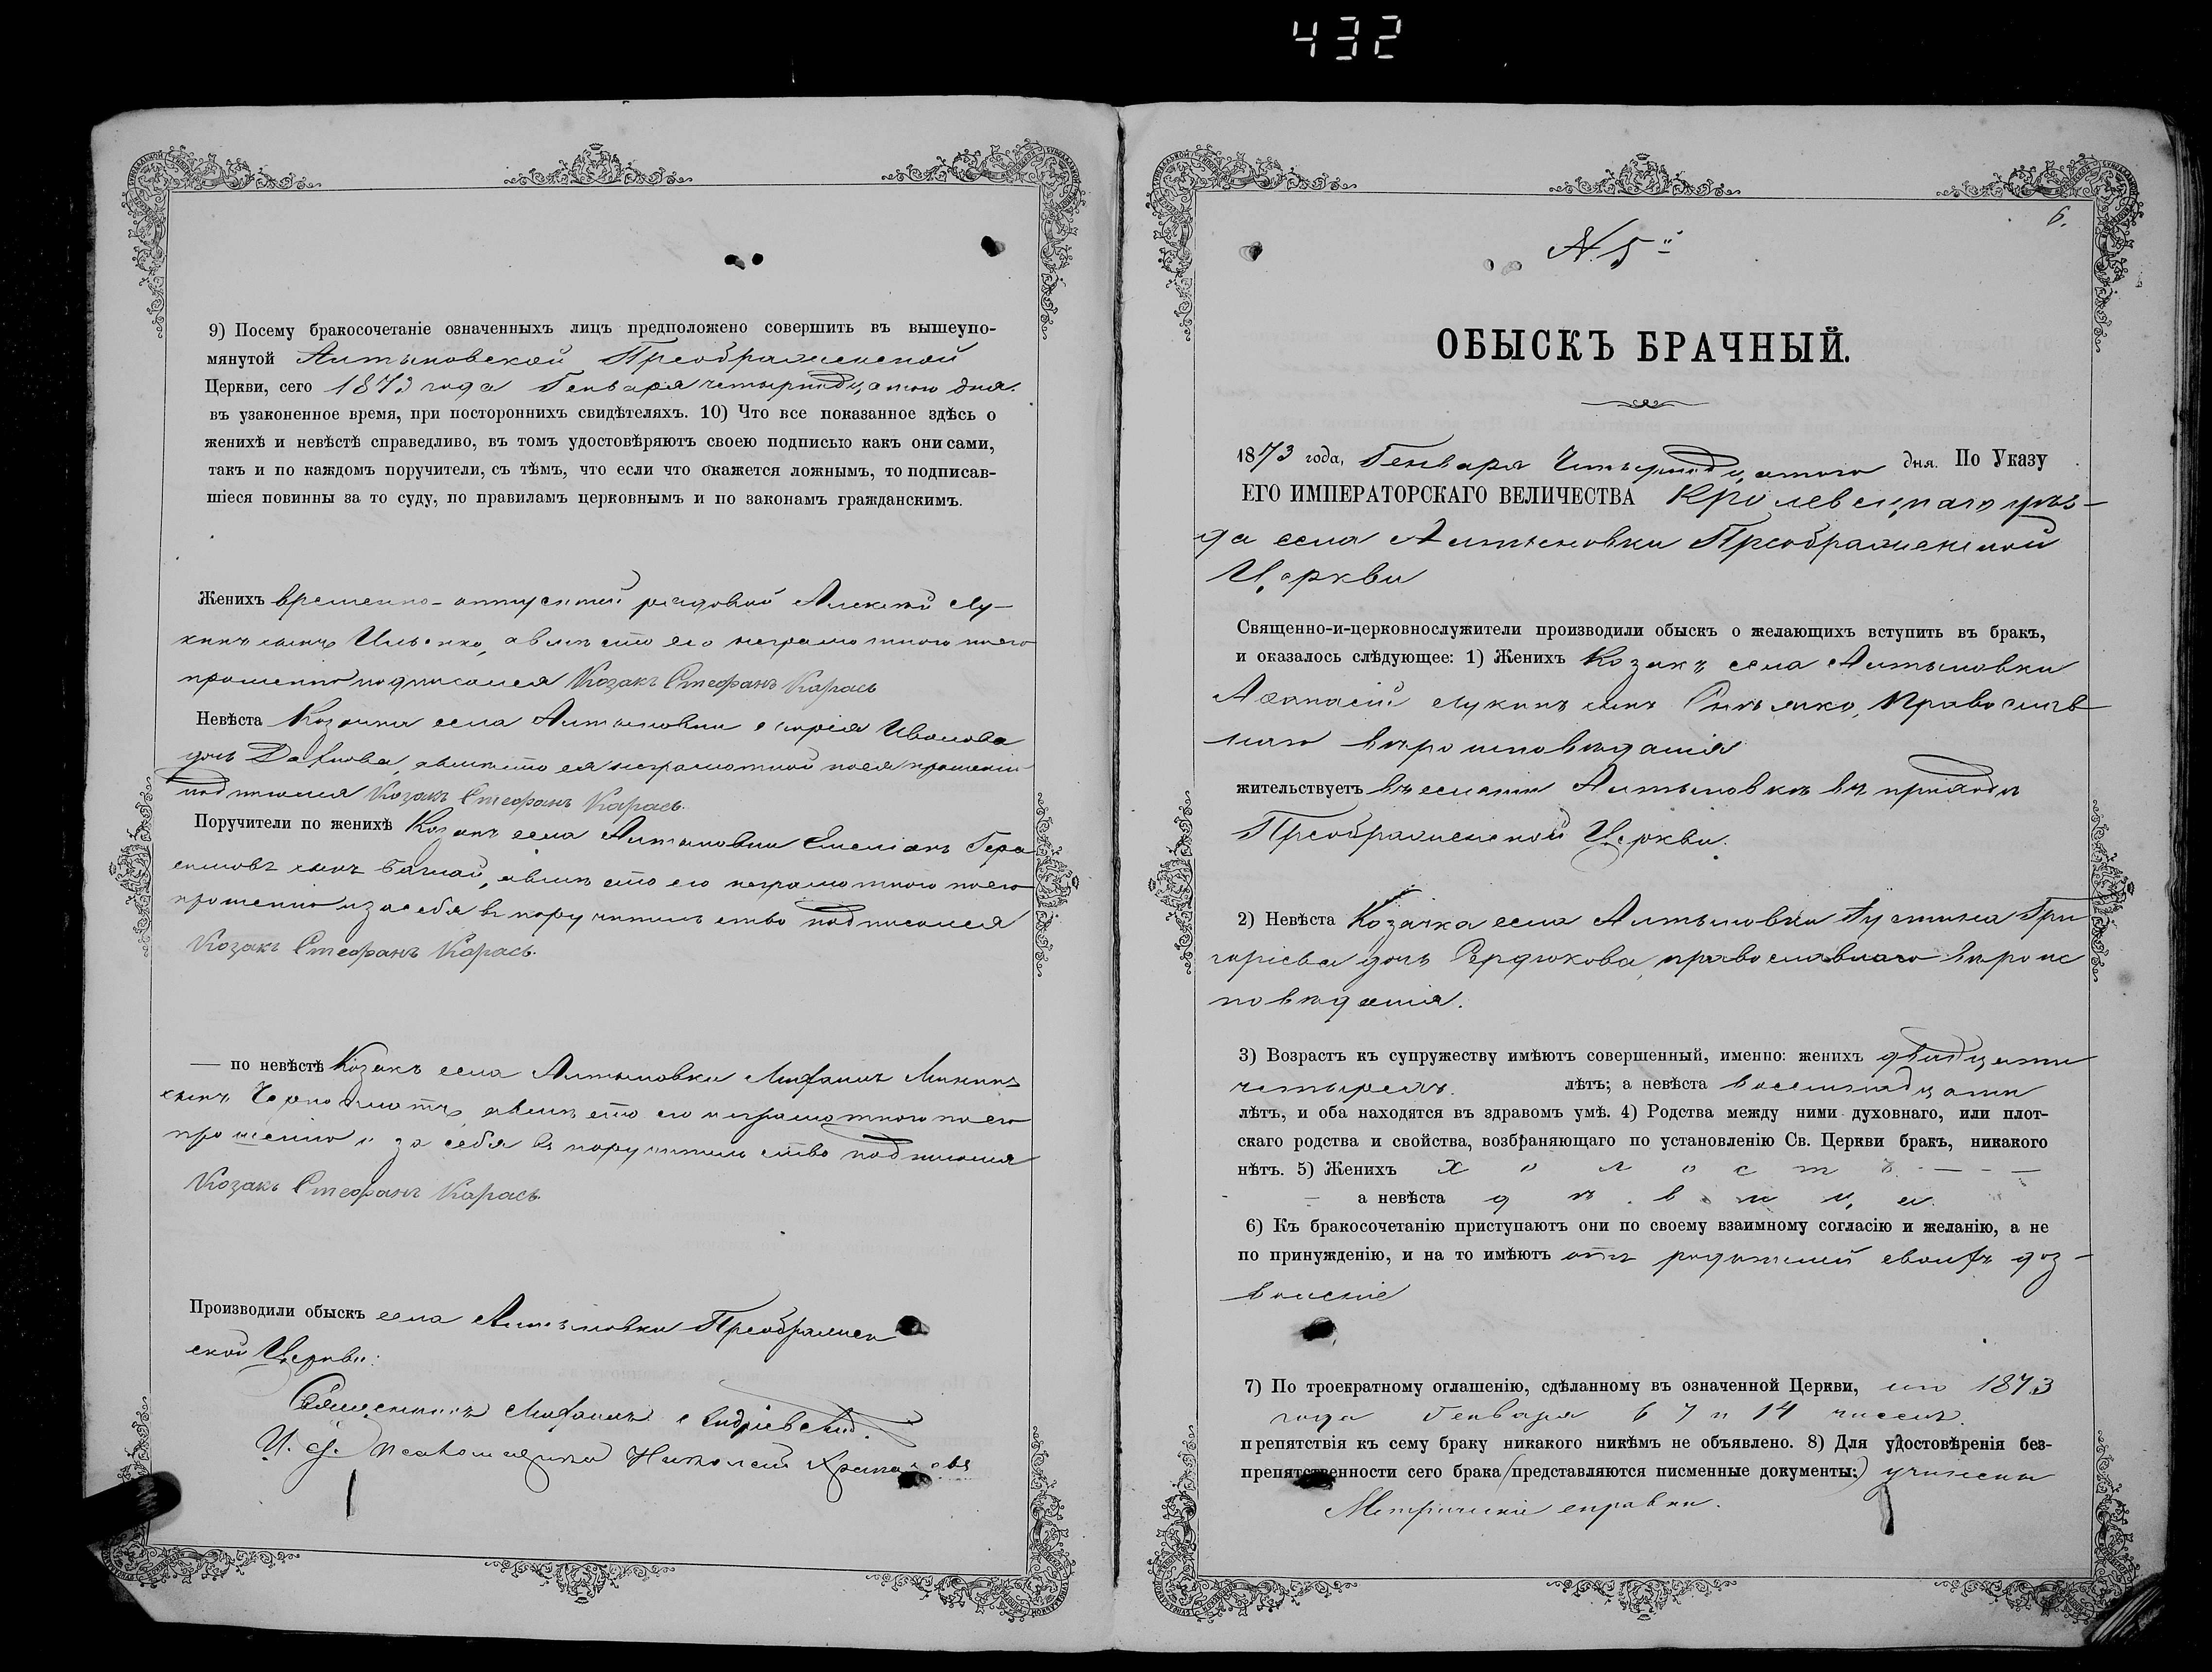 432
9) Посему бракосочетаніе означенныхъ лицъ предположено совершить въ вышеупо-
мянутой Алтыновской Преображенской
Церкви, сего 1873 года Генваря четырнадцатого дня.
въ узаконенное время, при постороннихъ свидѣтеляхъ. 10) Что все показанное здѣсь о
женихѣ и невѣстѣ справедливо, въ томъ удостовѣряютъ своею подписью какъ они сами,
такъ и по каждомъ поручители, съ тѣмъ, что если что окажется ложнымъ, то подписав-
шіеся повинны за то суду, по правиламъ церковнымъ и по законамъ гражданскимъ.
Женихъ временно-отпускной рядовой Алексѣй Лу-
кинъ сынъ Ильенко, а вмѣсто его неграмотного по его
прошенію подписался Козакъ Стефанъ Карась
Невѣста Козачка села Алтыновки Марія Иванова
дочь, а вмѣсто ея неграмотной по ея прошенію
подписался Козакъ Стефанъ Карась.
Поручители по женихѣ Козакъ села Алтыновки Емеліанъ Гера
симовъ сынъ, а вмѣсто его неграмотного по его
прошенію и за себя в поручительство подписался
Козакъ Стефанъ Карась.
— по невѣстѣ Козакъ села Алтыновки
сынъ, а вмѣсто его неграмотного по его
прошенію и за себя въ поручительство подписался
Козакъ Стефанъ Карась.
Производили обыскъ села Алтыновки Преображен
ской Церкви:
Священникъ Андріевский.
И. д. псаломщика Николай
6.
N. 5й
ОБЫСКЪ БРАЧНЫЙ.
1873 года, Генваря Четырнадцатого дня. По Указу
ЕГО ИМПЕРАТОРСКАГО ВЕЛИЧЕСТВА Кролевецкаго уѣз-
да села Алтыновки Преображенской
Церкви
Священно-и-церковнослужители производили обыскъ о желающихъ вступить въ бракъ,
и оказалось слѣдующее: 1) Женихъ Козакъ села Алтыновки
Афанасій Лукинъ сынъ, Православ
наго вѣроисповѣданія
жительствуетъ въ селеніи Алтыновкѣ въ приходѣ
Преображенской Церкви.
2) Невѣста Козачка села Алтыновки Іустина Гри
горіева дочь Сердюкова, православнаго вѣроис
повѣданія.
3) Возрастъ къ супружеству имѣютъ совершенный, именно: женихъ двадцати
четырехъ. лѣтъ; а невѣста восемнадцати
лѣтъ, и оба находятся въ здравомъ умѣ. 4) Родства между ними духовнаго, или плот-
скаго родства и свойства, возбраняющаго по установленію Св. Церкви бракъ, никакого
нѣтъ. 5) Женихъ холостъ - - -
— а невѣста дѣвица.
6) Къ бракосочетанію приступаютъ они по своему взаимному согласію и желанію, а не
по принужденію, и на то имѣютъ отъ родителей своихъ доз-
воленіе
7) По троекратному оглашенію, сдѣланному въ означенной Церкви, 1873
года Генваря 6 7 и 14 чиселъ.
препятствія къ сему браку никакого никѣмъ не объявлено. 8) Для удостовѣренія без-
препятственности сего брака (представляются писменные документы:) учинены
Метрическіе справки.